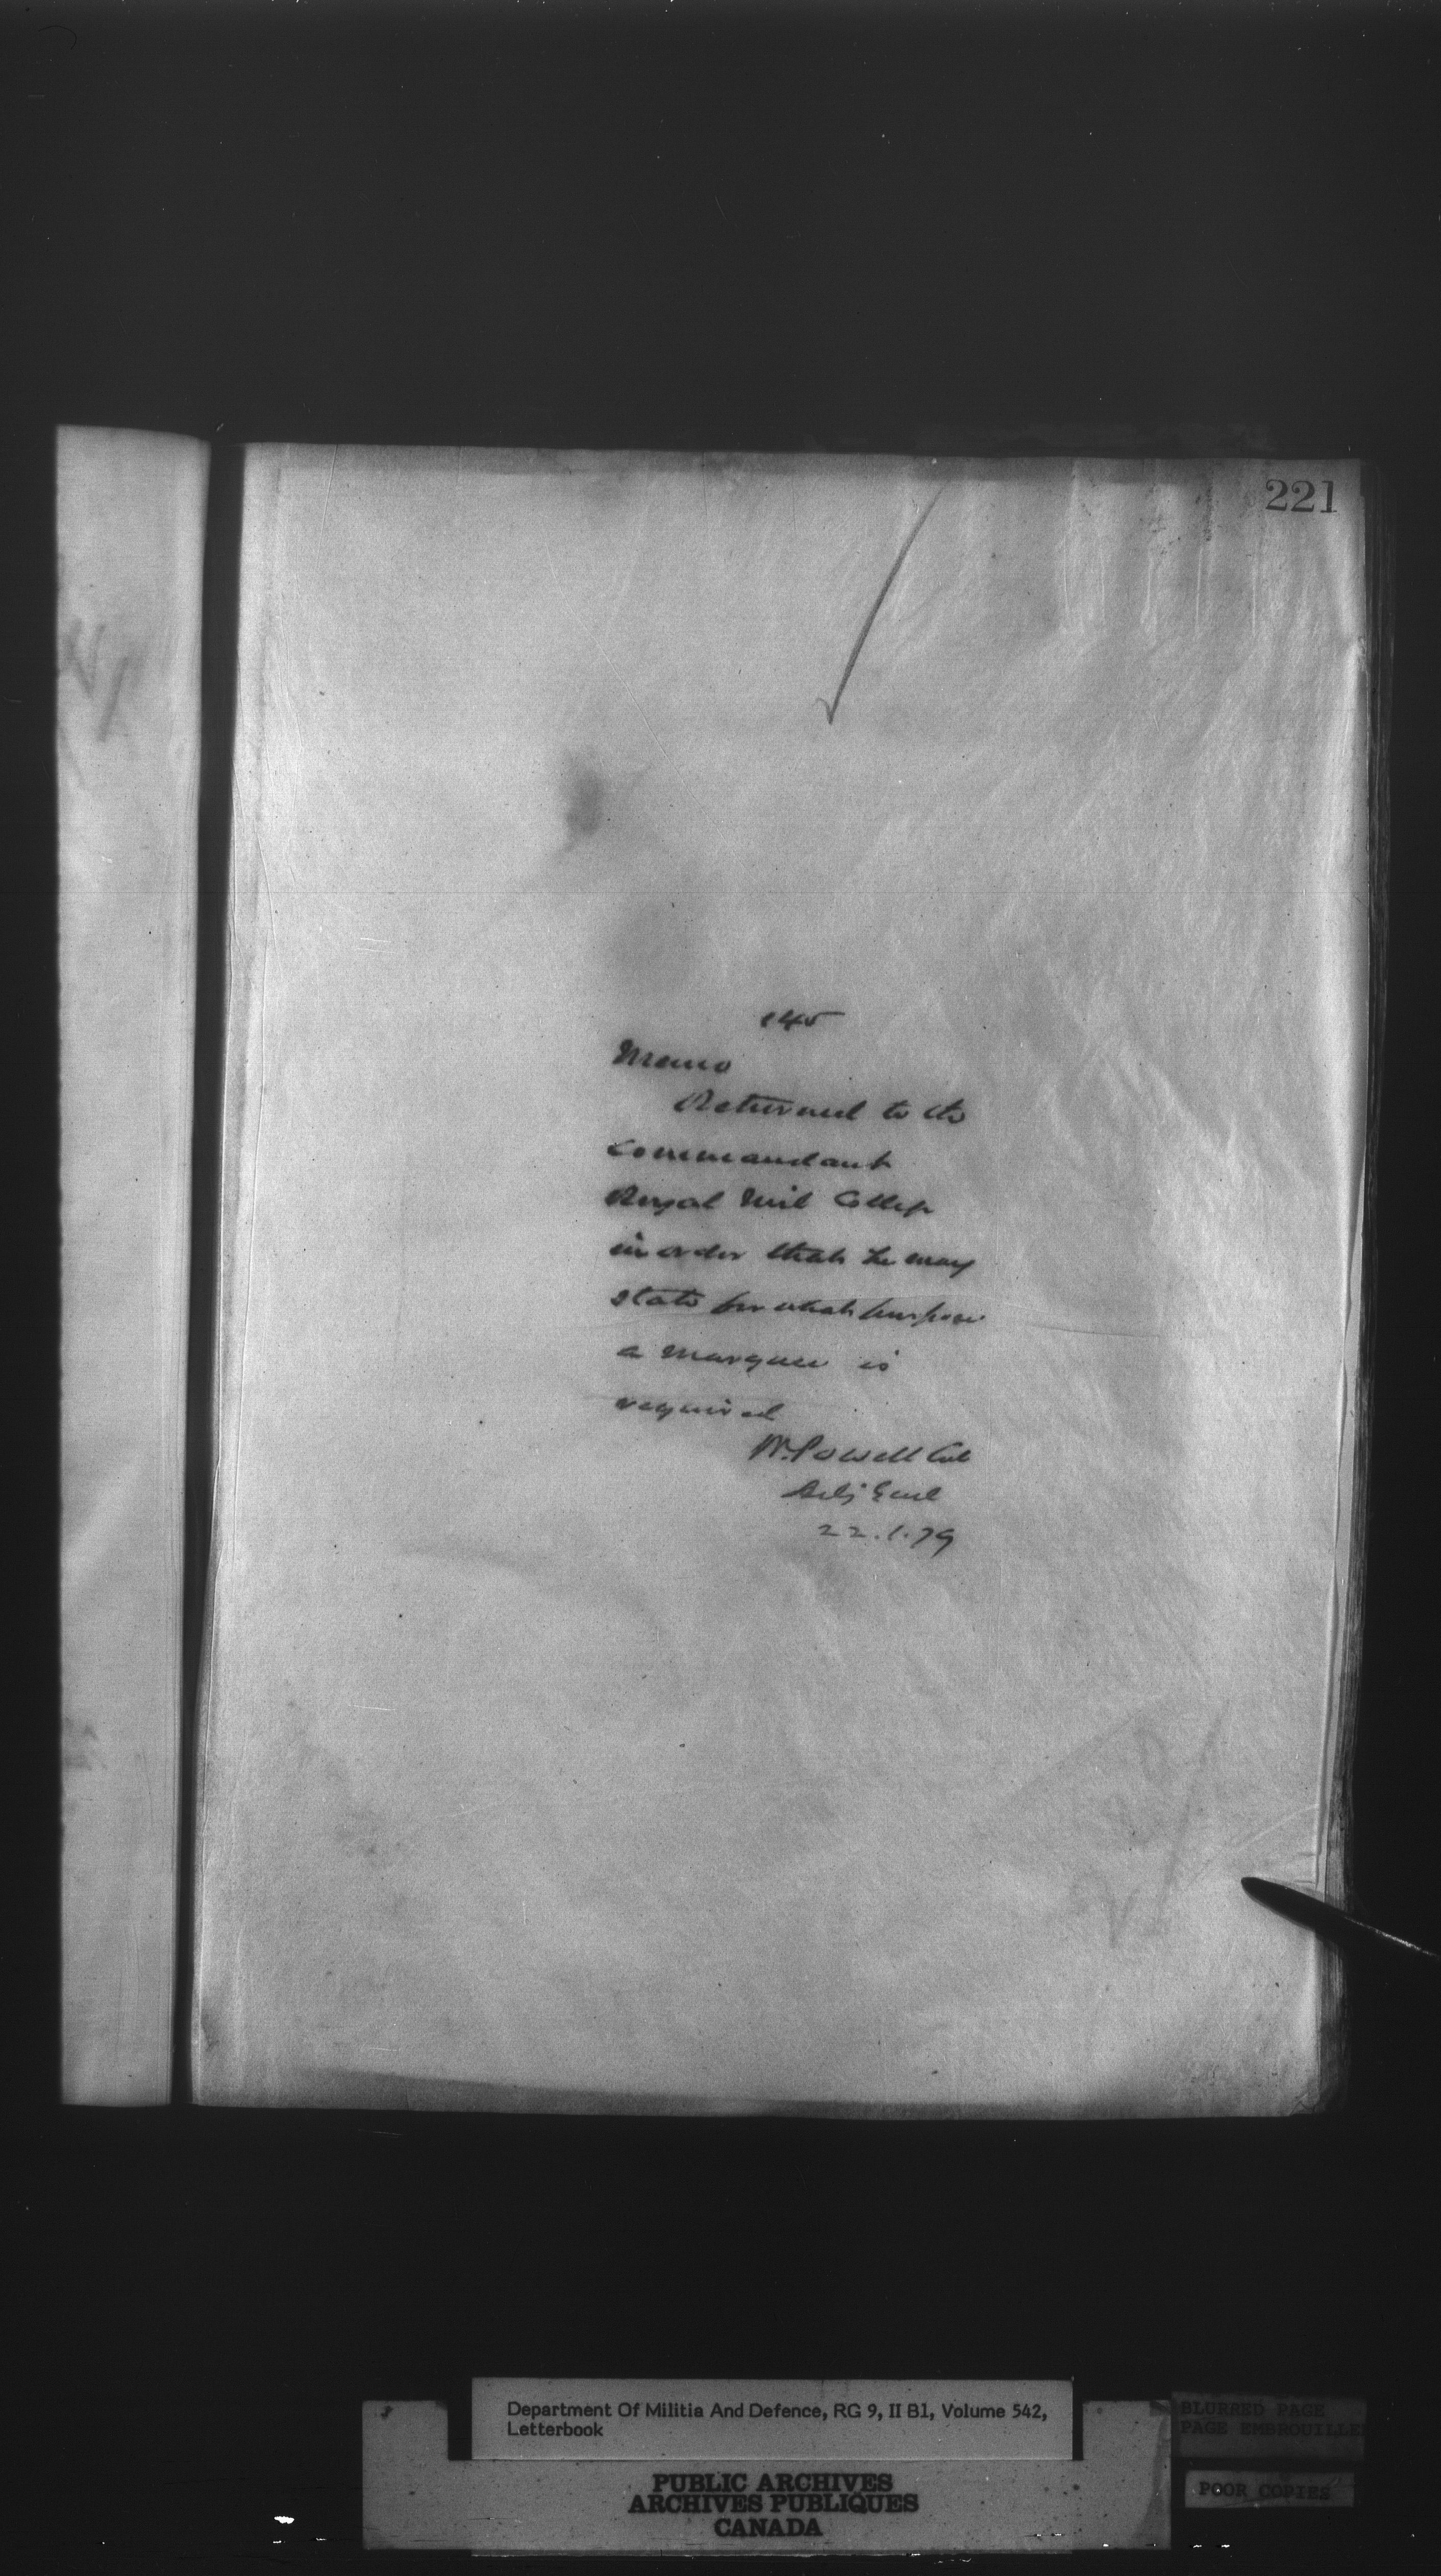 221
145
Memo
Returned to the
Commandant
Royal Mil College
in order that he may
state for what purpose
a marquee is
required
W. Powell Col
Adj Genl
22.1.79
Department Of Militia And Defence, RG 9, II B1, Volume 542,
Letterbook
BLURRED PAGE
PAGE EMBROUILLE
POOR COPIES
PUBLIC ARCHIVES
ARCHIVES PUBLIQUES
CANADA